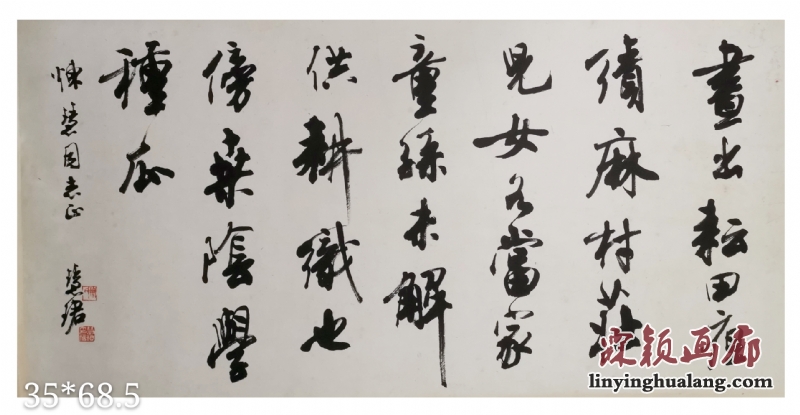 晝出耘田夜
績麻村莊
兒女各當家
童孫未解
供耕織也
傍桑陰學
種瓜
慧同志正
慧珺
颖画廊
linyinghualang.com
35*68.5